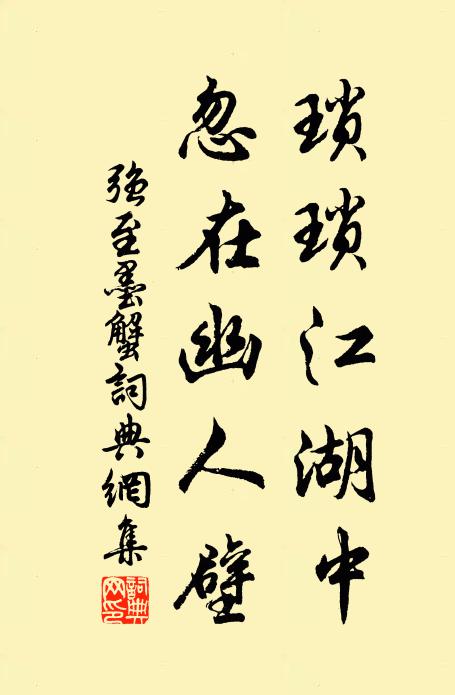 瑣瑣江湖中
忽在幽人壁
強至墨蟹詞典網集
詞典网印